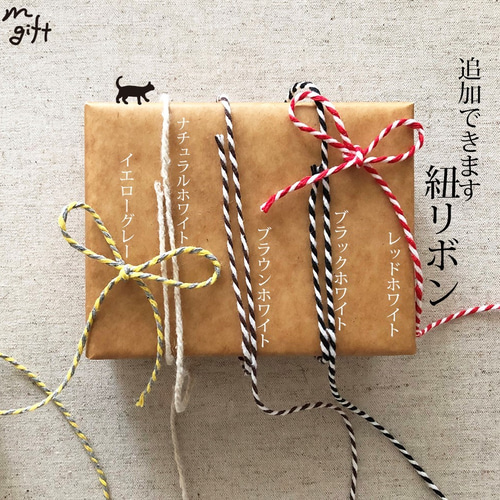 m
gift
追加できます
紐リボン
イエローグレー
ナチュラルホワイト
ブラウンホワイト
ブラックホワイト
レッドホワイト